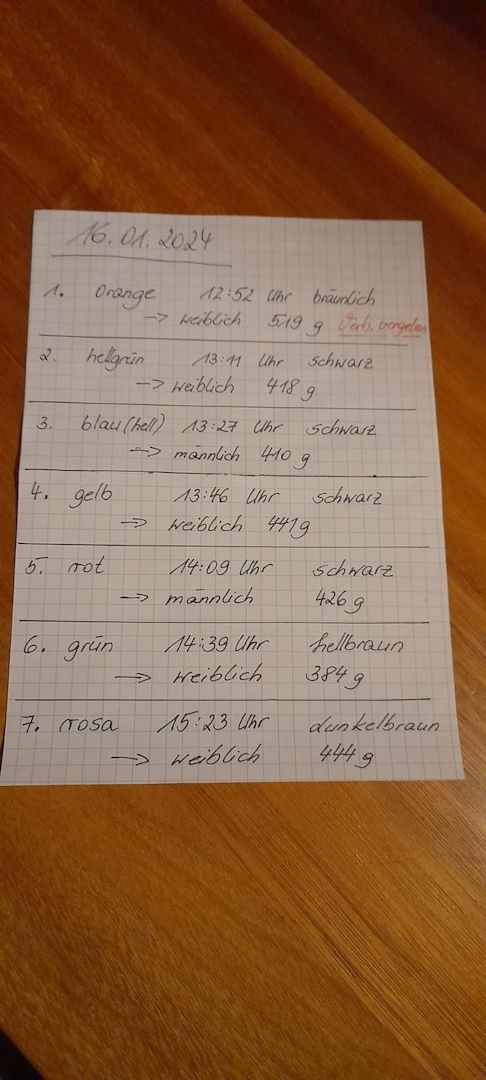 16.01.2024
1. Orange 12:52 Uhr bräunlich
→ weiblich 519 g Verb. vergeben
2. hellgrün 13:11 Uhr schwarz
→ weiblich 418 g
3. blau (hell) 13:27 Uhr schwarz
→ männlich 410 g
4. gelb 13:46 Uhr schwarz
→ weiblich 441 g
5. rot 14:09 Uhr schwarz
→ männlich 426 g
6. grün 14:39 Uhr hellbraun
→ weiblich 384 g
7. rosa 15:23 Uhr dunkelbraun
→ weiblich 444 g